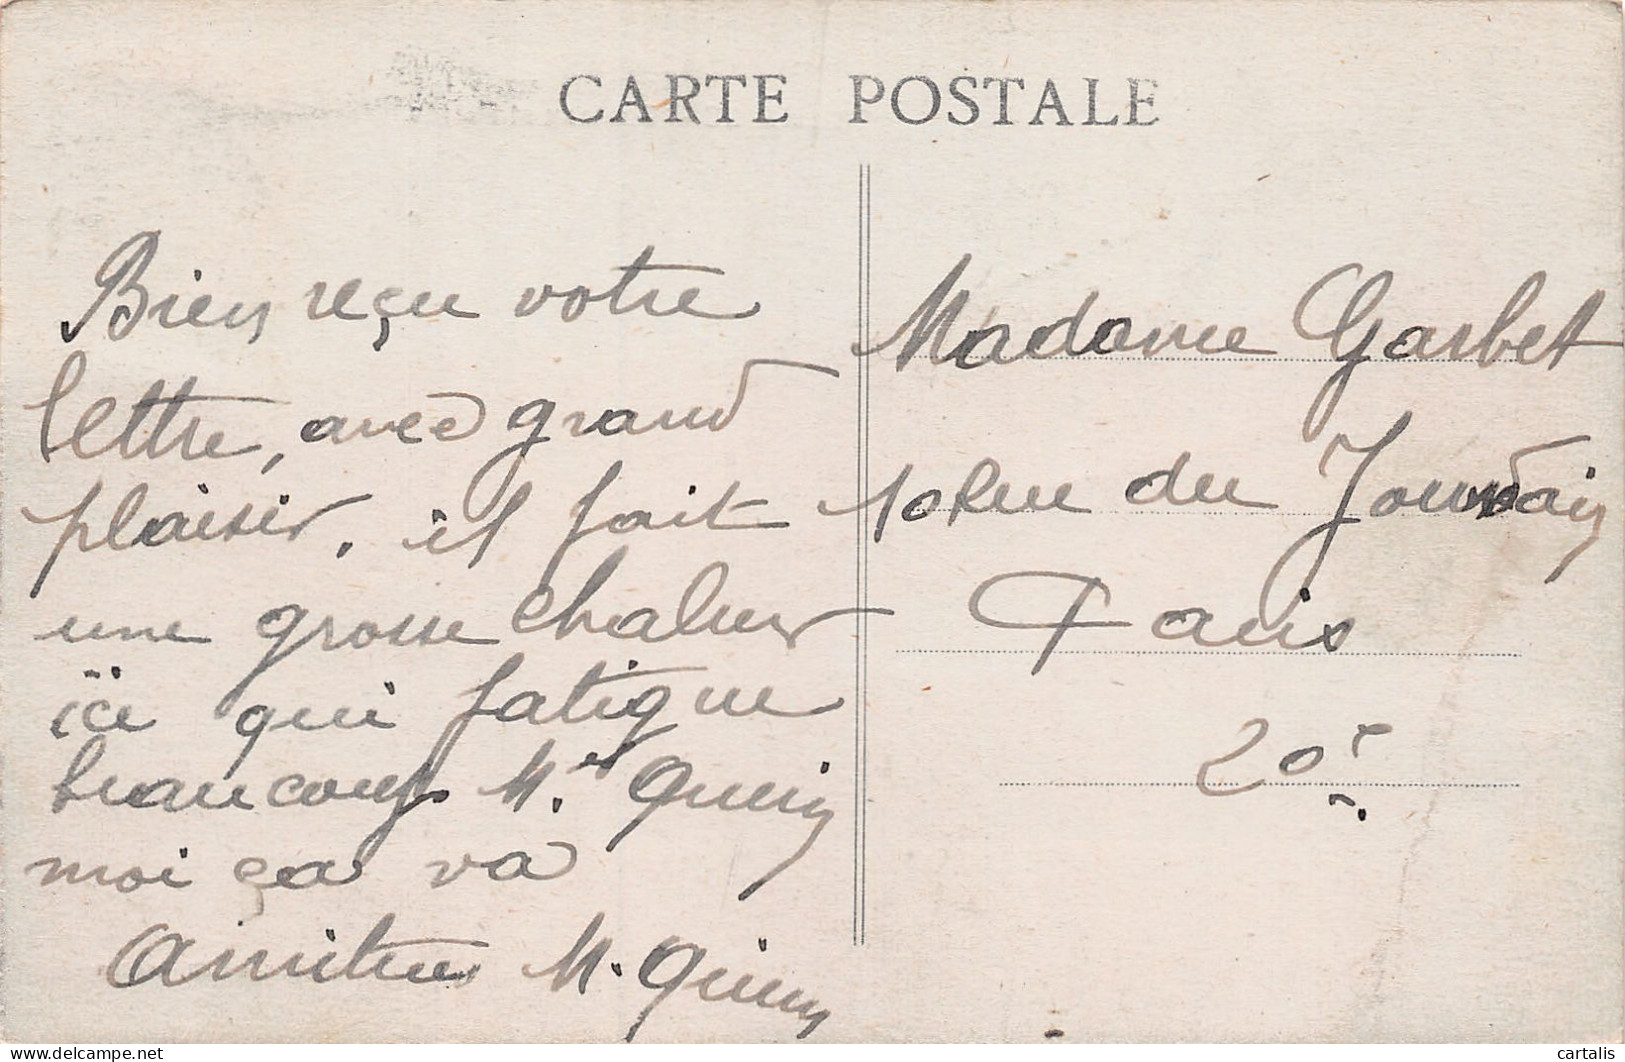 CARTE POSTALE
Bien reçu votre
lettre, avec grand
plaisir. il fait
une grosse chaleur
ici qui fatigue
beaucoup M.
moi ça va
Amitiés M.
Madame Garbet
10 Rue du Jourdain
Paris
20e
cartalis